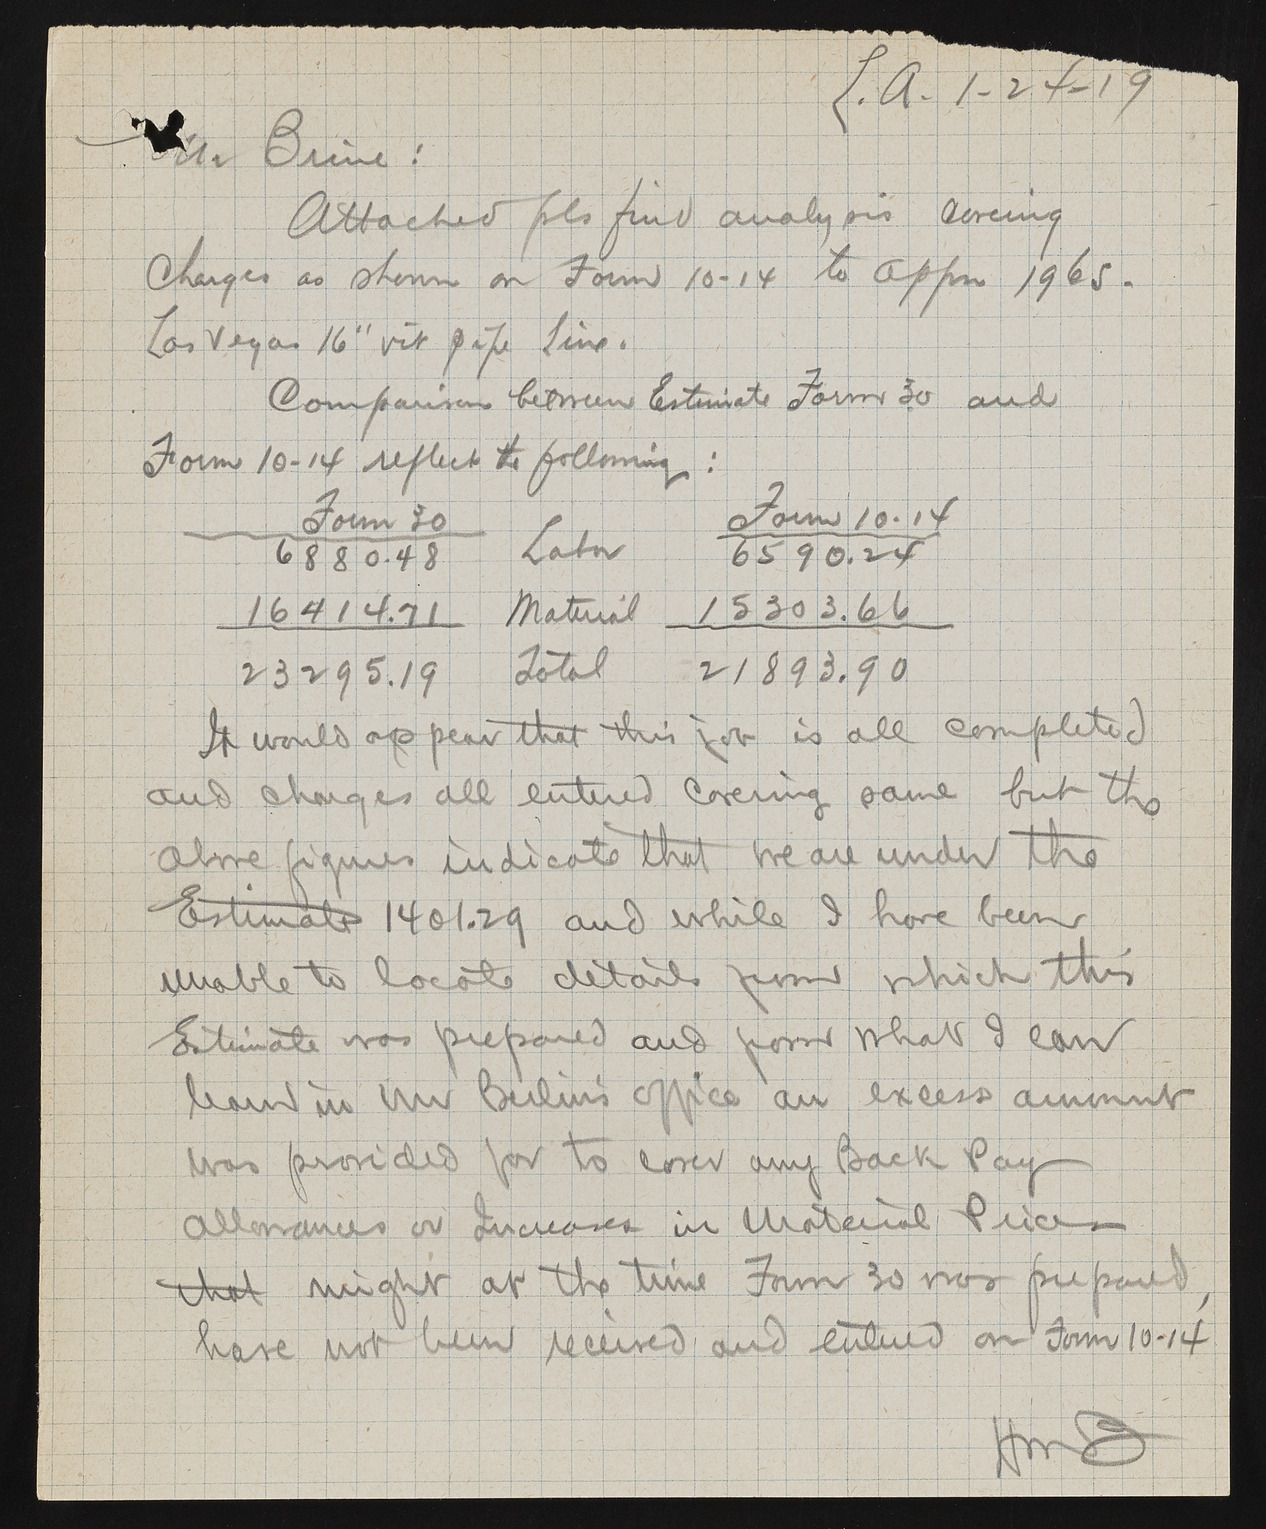 L.A. 1-24-19
Mr Brine:
Attached pls find analysis covering
Charges as shown on Form 10-14 to Appn 1965.
Las Vegas 16" vit pipe line.
Comparison between Estimate Form 30 and
Form 10-14 reflect the following:
Form 30 Form 10-14
6880.48 Labor 6590.24
16414.71 Material 15303.66
23295.19 Total 21893.90
It would appear that this job is all completed
and charges all entered Covering same but the
above figures indicate that we are under the
Estimate 1401.29 and while I have been
unable to locate details from which this
Estimate was prepared and from what I can
learn in Mr office an excess amount
was provided for to cover any Back Pay
allowances or Increases in Material Prices
that might at the time Form 30 was prepared,
have not been received and entered on Form 10-14